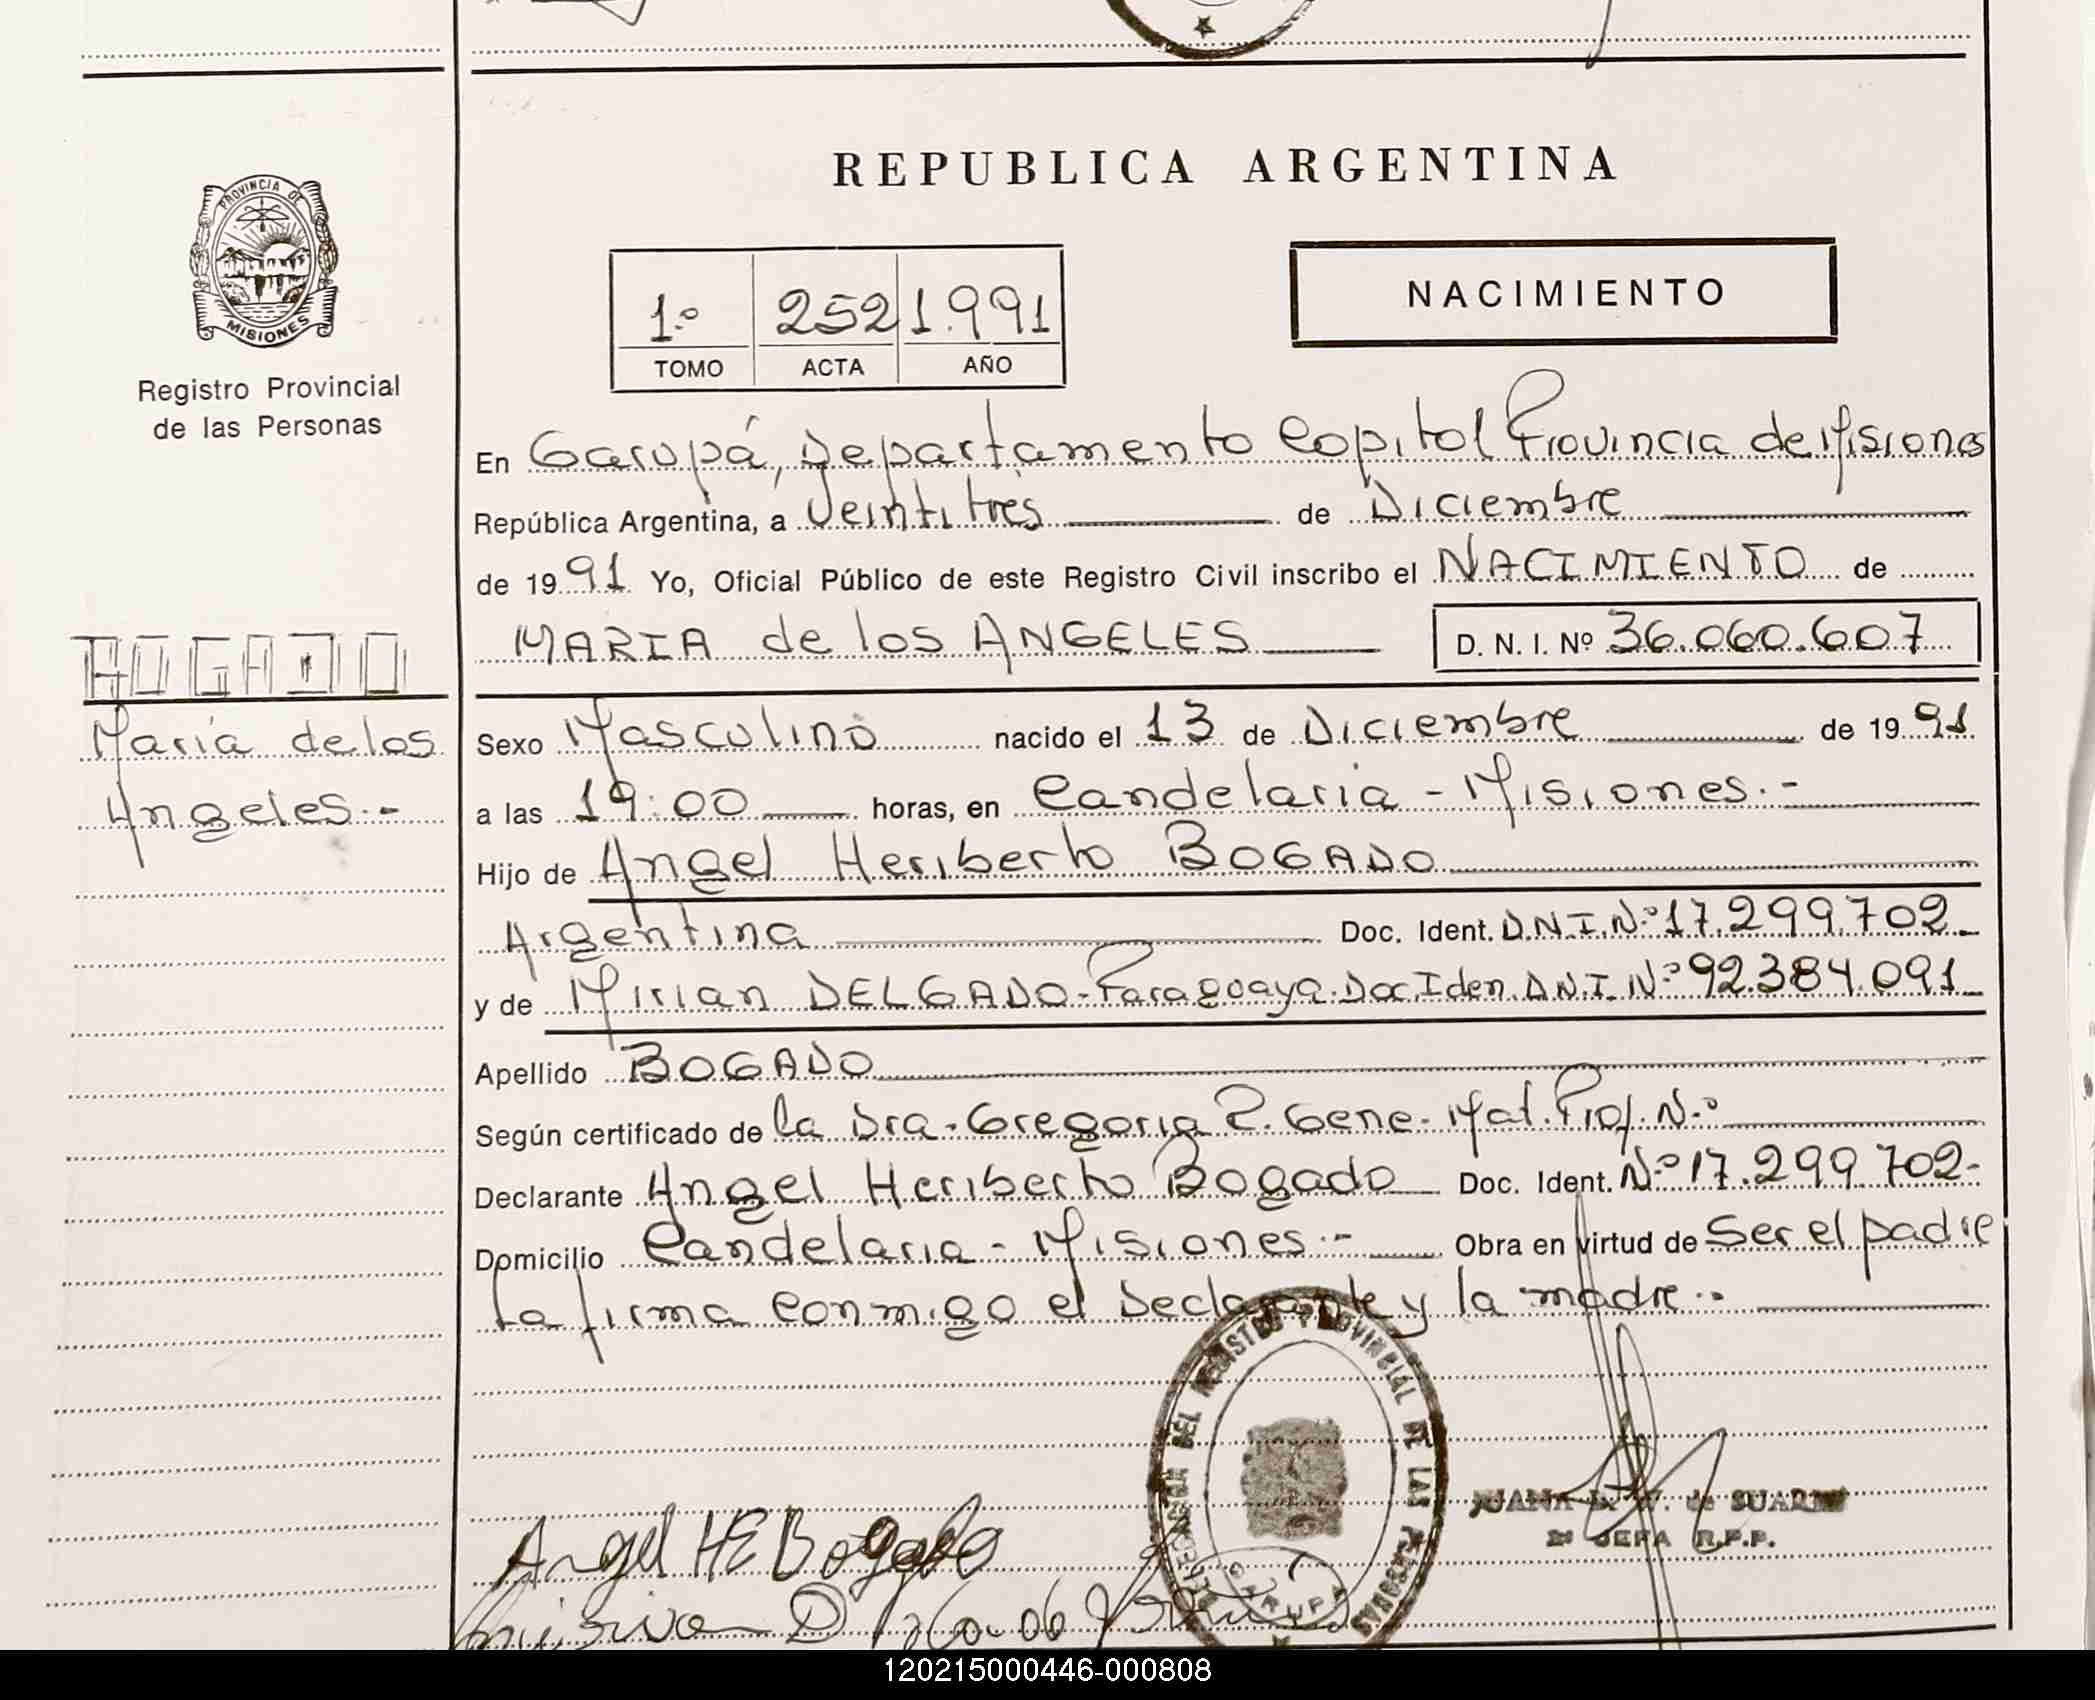 PROVINCIA DE
MISIONES
Registro Provincial
de las Personas
REPUBLICA ARGENTINA
1º 252 1.991
TOMO ACTA AÑO
NACIMIENTO
En Garupá, Departamento Capital Provincia de Misiones
República Argentina, a Veintitrés de Diciembre
de 19 91 Yo, Oficial Público de este Registro Civil inscribo el NACIMIENTO de
MARIA de los ANGELES D. N. I. Nº 36.060.607
BOGADO
María de los
Angeles.-
Sexo Masculino nacido el 13 de Diciembre de 19 91
a las 19:00 horas, en Candelaria - Misiones.-
Hijo de Angel Heriberto BOGADO
Argentina Doc. Ident. D.N.I.Nº 17.299.702
y de Mirian DELGADO-Paraguaya.Doc.Iden.D.N.I.Nº 92.384.091
Apellido BOGADO
Según certificado de la Dra. Gregoria Z. Gene. Mat. Prof. N.º
Declarante Angel Heriberto Bogado Doc. Ident. Nº 17.299.702-
Domicilio Candelaria - Misiones.- Obra en virtud de Ser el padre
La firma conmigo el Declarante y la madre.
DEL REGISTRO PROVINCIAL DE LAS PERSONAS
GARUPA
JUANA de SUAREZ
JEFA R.P.P.
Angel HE Bogado
120215000446-000808